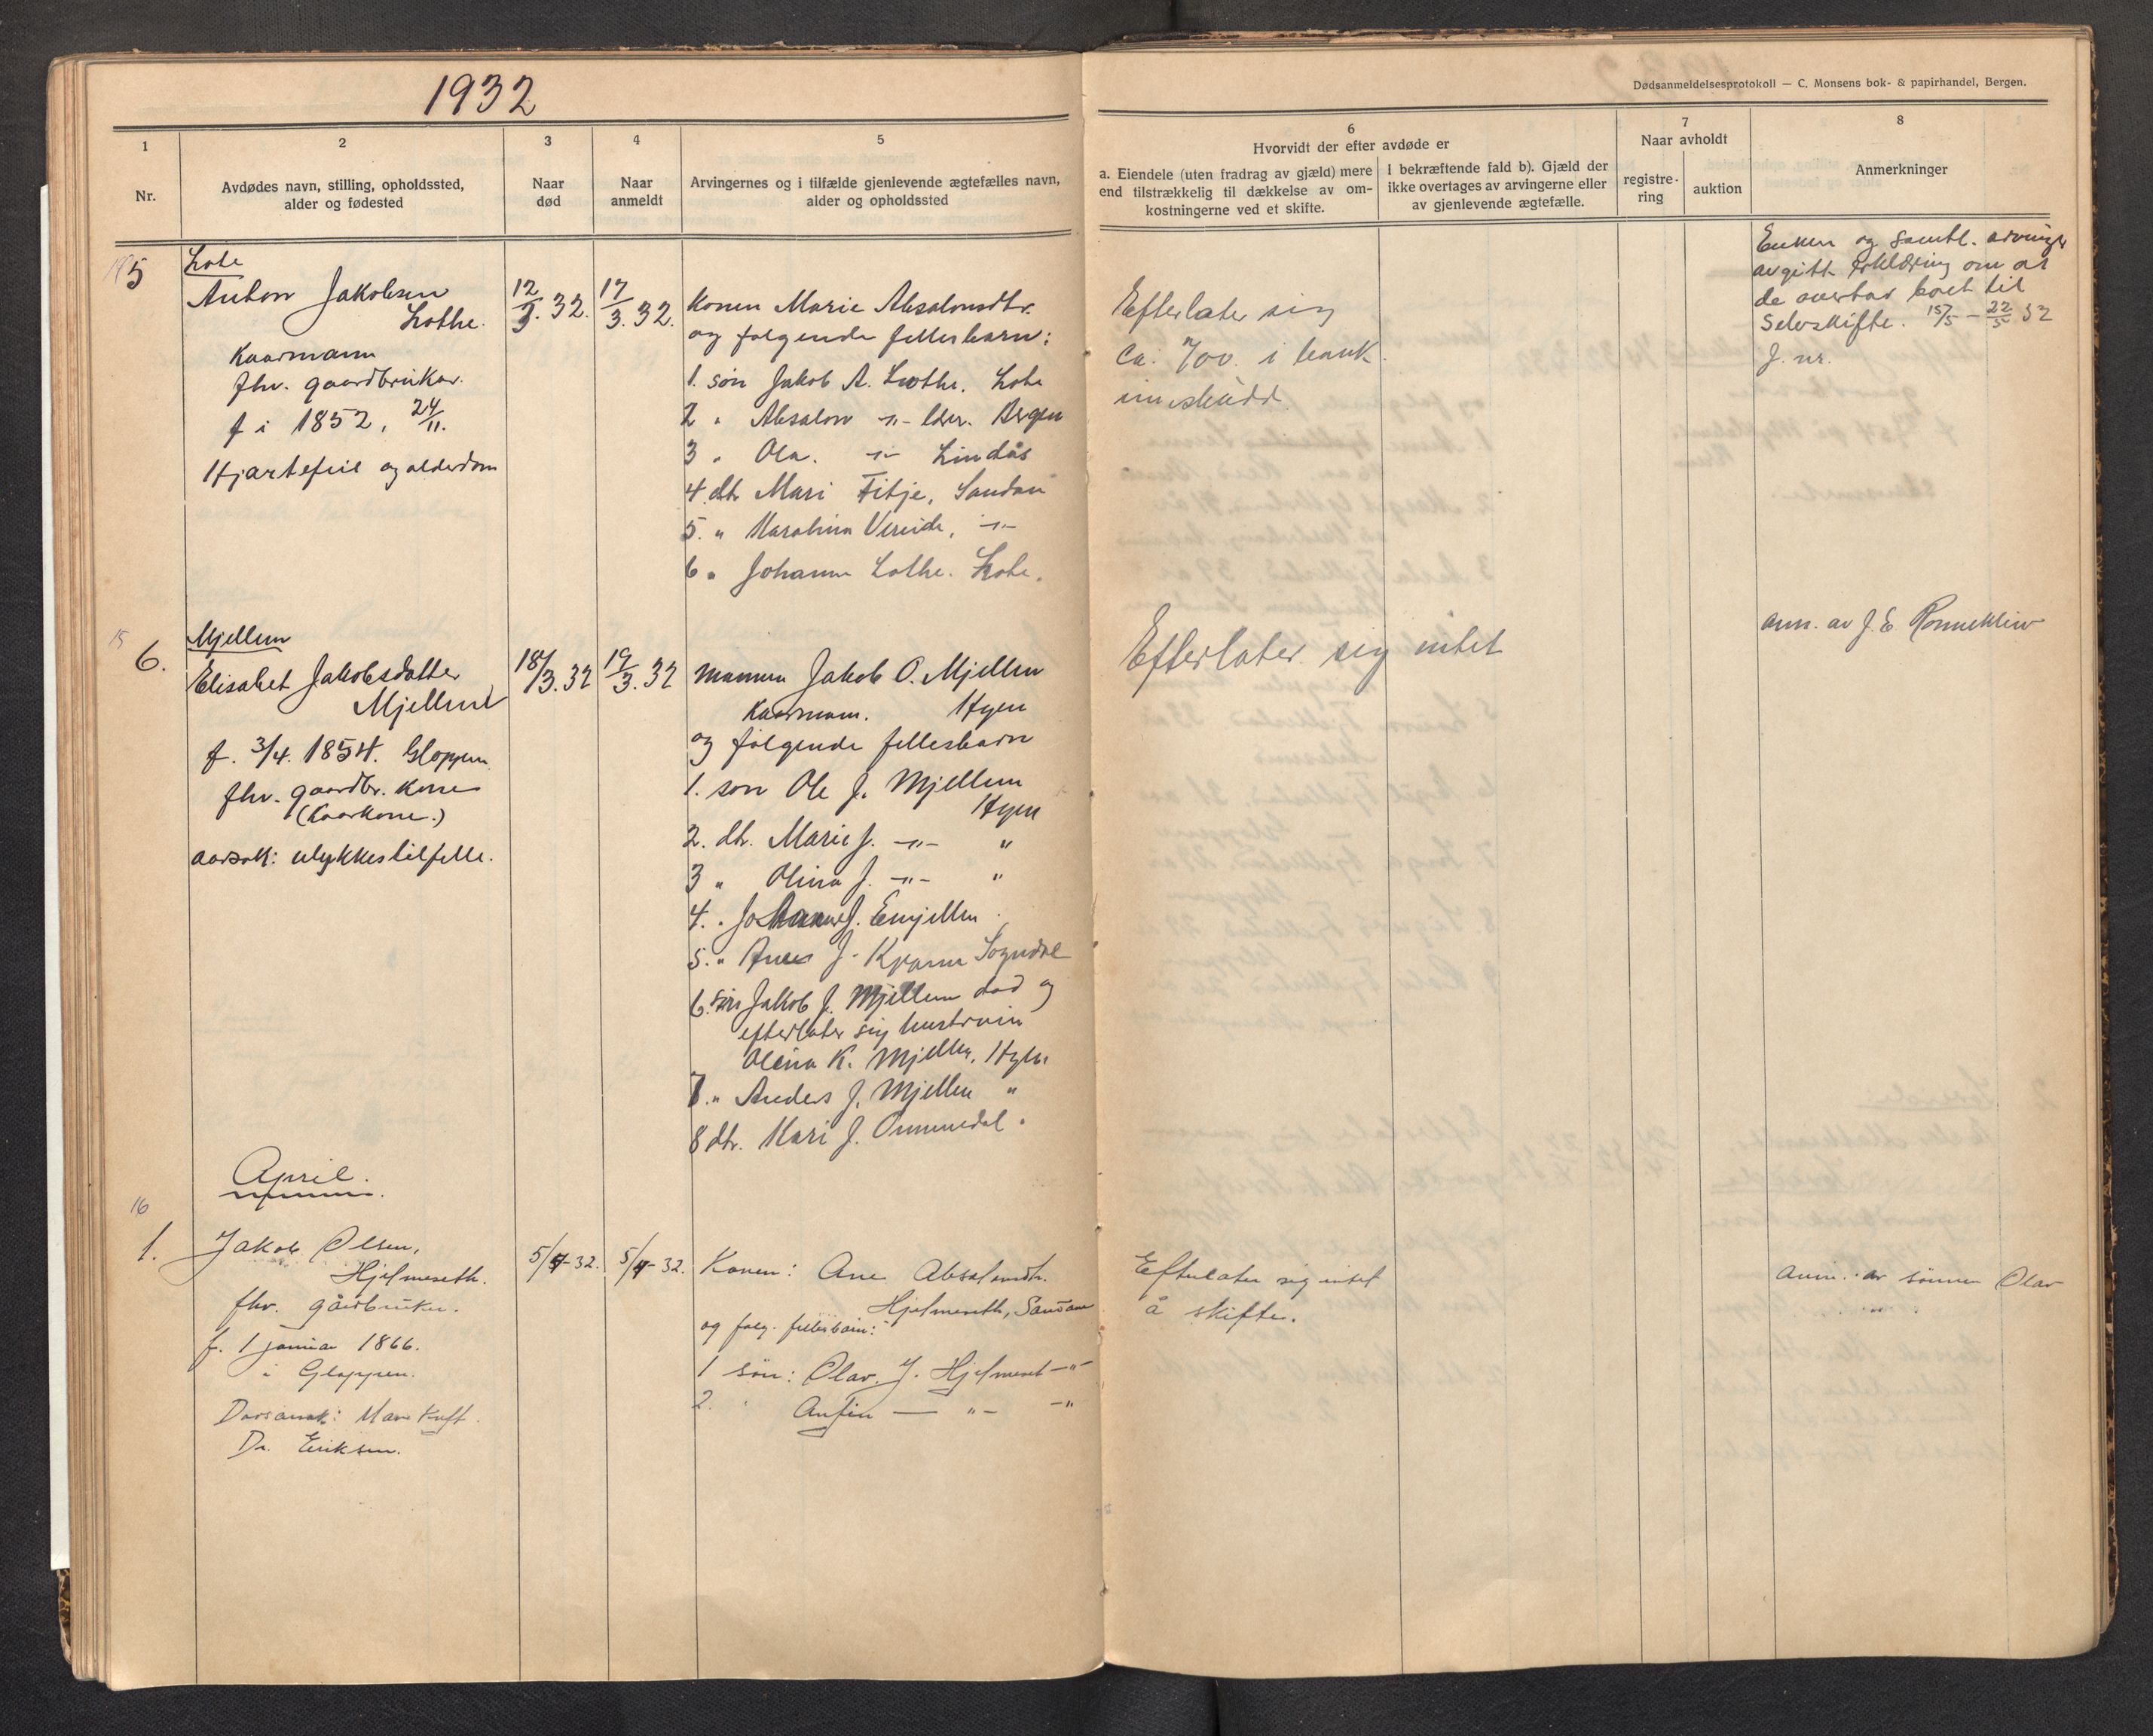 1932
Dødsanmeldelsesprotokoll — C. Monsens bok- & papirhandel, Bergen.
1
Nr.
2
Avdødes navn, stilling, opholdssted,
alder og fødested
3
Naar
død
4
Naar
anmeldt
5
Arvingernes og i tilfælde gjenlevende ægtefælles navn,
alder og opholdssted
6
Hvorvidt der efter avdøde er
a. Eiendele (uten fradrag av gjæld) mere
end tilstrækkelig til dækkelse av om-
kostningerne ved et skifte.
I bekræftende fald b). Gjæld der
ikke overtages av arvingerne eller
av gjenlevende ægtefælle.
7
Naar avholdt
registre-
ring
auktion
8
Anmerkninger
5
Lote
Anton Jakobsen
Lothe.
Kaarmann
fhv. gaardbruker.
f i 1852, 24/11.
Hjartefeil og alderdom
12/3. 32.
17/3. 32.
Konen Marie Absalonsdtr.
og følgende fellesbarn:
1. søn Jakob A. Lothe. Lote
2 " Absalon -"- lærer. Bergen
3 " Ola. -"- Lindås
4. dtr Mari Fitje, Sandan
5. " Karolina Vereide, -"-
6 " Johanna Lothe. Lote.
Efterlater sig
ca. 700. i bank
innskudd
Enken og samtl. arvinger
avgitt erklæring om at
de overtar boet til
Selvskifte. 15/5 - 22/5 32
J. nr.
15
6.
Mjellem
Elisabet Jakobsdatter
Mjellem
f. 3/4. 1854. Gloppen
fhv. gaardbr. kone
(Kaarkone.)
aarsak: ulykkestilfelle.
18/3. 32
19/3. 32
Mannen Jakob O. Mjellem
Kaarmann. Hyen
og følgende fellesbarn
1. søn Ole J. Mjellem
Hyen
2. dtr. Marie J. -"- "
3 " Olina J. -"- "
4. " Johanne J. Emjellen
5. " Anne J. Sogndal
6. søn Jakob J. Mjellem død og
efterlater sig hustruen
Olina K. Mjellem, Hyen
7. " Anders J. Mjellem "
8 dtr. Kari J. Ommedal "
Efterlater sig intet
anm. av J. E. Rønnekleiv
April.
16
1.
Jakob Olsen,
Hjelmeseth.
fhv. gårdbruker.
f. 1 januar 1866.
i Gloppen.
Dødsårsak: Mavekreft.
Dr. Eriksen.
5/4-32.
5/4-32.
Konen: Ane Absalonsdtr.
Hjelmeseth, Sandane
og følg. fellesbarn:
1 søn: Olav. J. Hjelmeset -"-
2. " Anfin — "- -"
Efterlater sig intet
å skifte.
Anm. av sønnen Olav